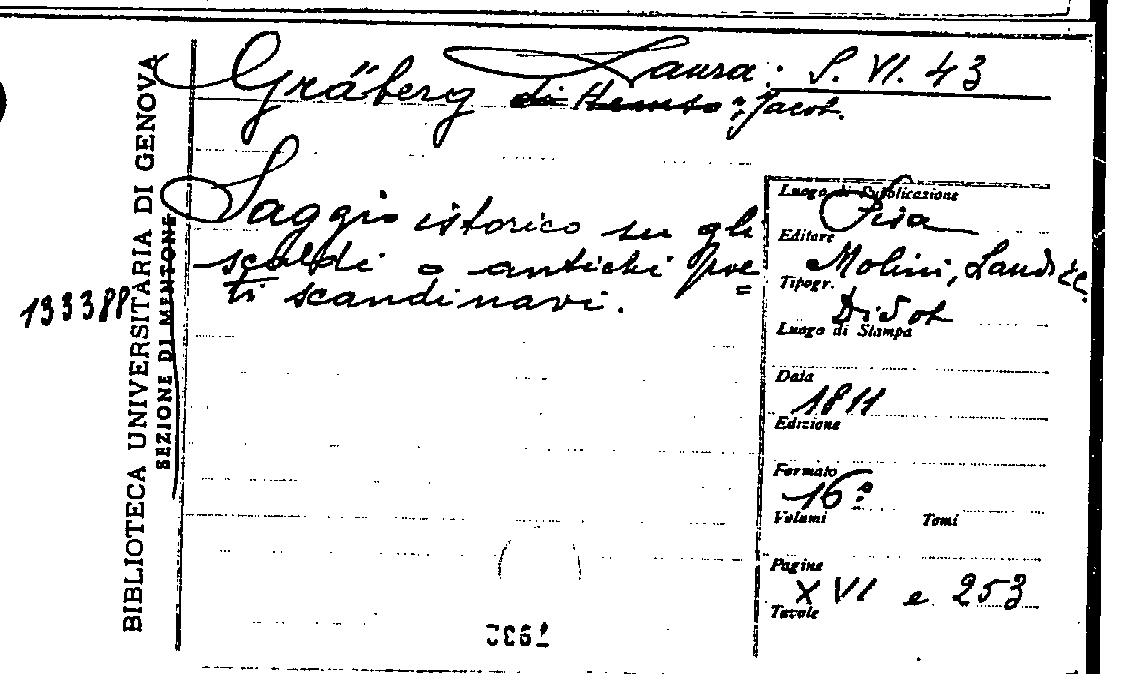 BIBLIOTECA UNIVERSITARIA DI GENOVA
SEZIONE DI MENTONE
133388
Laura: S. VI. 43
Gräberg di Hemso, Jacob.
Saggio istorico su gli
scaldi o antichi poe=
ti scandinavi.
Luogo di Pubblicazione
Pisa
Editore
Molini, Landi &c.
Tipogr.
Didot
Luogo di Stampa
Data
1811
Edizione
Formato
16º
Volumi Tomi
Pagine
XVI e 253
Tavole